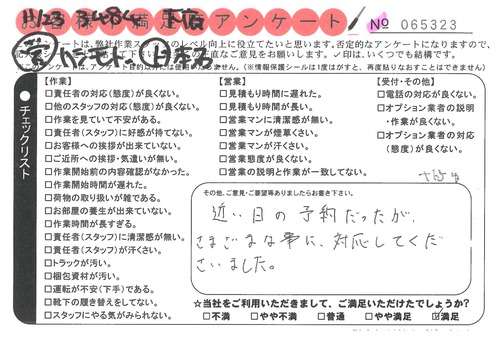 お客様満足アンケート
11/23
No 065323
ケートは、弊社作業スタッフのレベル向上に役立てたいと思います。否定的なアンケートになりますので、
直なご意見をお願いします。✓印は、いくつでも結構です。
(※情報保護シールは1度はがすと、再度貼りなおすことはできません)
チェックリスト
【作業】
□責任者の対応(態度)が良くない。
□他のスタッフの対応(態度)が良くない。
□作業を見ていて不安がある。
□責任者(スタッフ)に好感が持てない。
□お客様への挨拶が出来ていない。
□ご近所への挨拶・気遣いが無い。
□作業開始前の内容確認がなかった。
□作業開始時間が遅れた。
□荷物の取り扱いが雑である。
□お部屋の養生が出来ていない。
□作業時間が長すぎる。
□責任者(スタッフ)に清潔感が無い。
□責任者(スタッフ)が汗くさい。
□トラックが汚い。
□梱包資材が汚い。
□運転が不安(下手)である。
□靴下の履き替えをしてない。
□スタッフにやる気がみられない。
【営業】
□見積もり時間に遅れた。
□見積もり時間が長い。
□営業マンに清潔感が無い。
□営業マンが煙草くさい。
□営業マンが汗くさい。
□営業態度が良くない。
□営業の説明と作業が一致してない。
【受付・その他】
□電話の対応が良くない。
□オプション業者の説明
・作業が良くない。
□オプション業者の対応
(態度)が良くない。
その他、ご意見・ご要望等ありましたらお書き下さい。
近い日の予約だったが、
さまざまな事に、対応してくだ
さいました。
☆当社をご利用いただきまして、ご満足いただけてでしょうか?
□不満 □やや不満 □普通 □やや満足 ☑満足